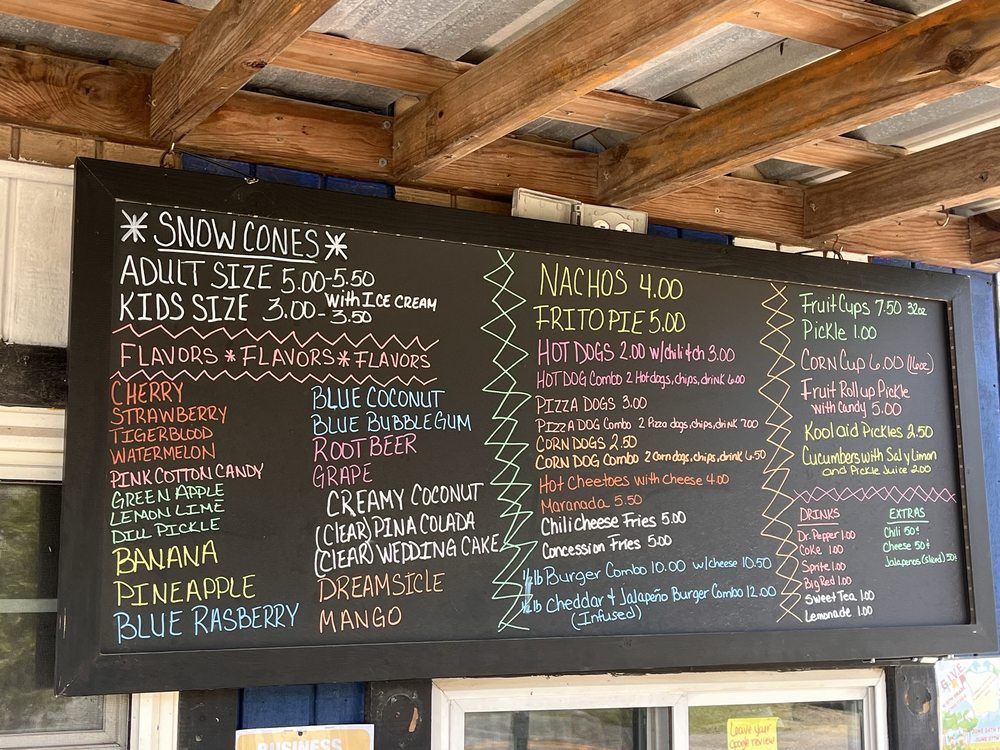 * SNOW CONES *
ADULT SIZE 5.00-5.50
KIDS SIZE 3.00 - 3.50
With ICE CREAM
FLAVORS * FLAVORS * FLAVORS
CHERRY
STRAWBERRY
TIGERBLOOD
WATERMELON
PINK COTTON CANDY
GREEN APPLE
LEMON LIME
DILL PICKLE
BANANA
PINEAPPLE
BLUE RASBERRY
BLUE COCONUT
BLUE BUBBLEGUM
ROOT BEER
GRAPE
CREAMY COCONUT
(CLEAR) PINA COLADA
(CLEAR) WEDDING CAKE
DREAMSICLE
MANGO
NACHOS 4.00
FRITO PIE 5.00
HOT DOGS 2.00 w/chili & ch 3.00
HOT DOG Combo 2 Hot dogs, chips, drink 6.00
PIZZA DOGS 3.00
PIZZA DOG Combo 2 Pizza dogs, chips, drink 7.00
CORN DOGS 2.50
CORN DOG Combo 2 Corn dogs, chips, drink 6.50
Hot Cheetoes with Cheese 4.00
Maranada 5.50
Chili cheese Fries 5.00
Concession Fries 5.00
1/2 lb Burger Combo 10.00 w/cheese 10.50
1/2 lb Cheddar & Jalapeño Burger Combo 12.00
(Infused)
Fruit Cups 7.50 32oz
Pickle 1.00
CORN CUP 6.00 (16oz)
Fruit Roll up Pickle
with Candy 5.00
Kool aid Pickles 2.50
Cucumbers with Sal y Limon
and Pickle Juice 2.00
DRINKS
Dr. Pepper 1.00
Coke 1.00
Sprite 1.00
Big Red 1.00
Sweet Tea 1.00
Lemonade 1.00
EXTRAS
Chili 50¢
Cheese 50¢
Jalapenos (sliced) 50¢
BUSINESS
Leave your
Google review
GIVE